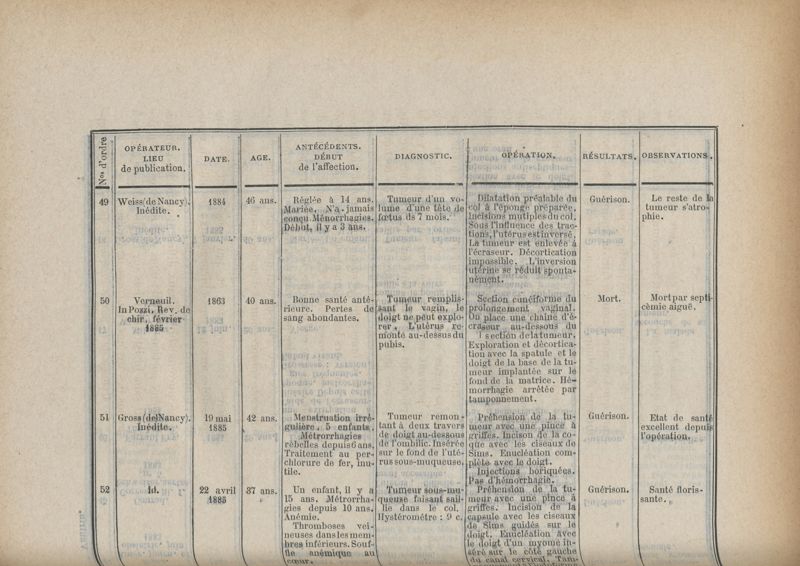 Nos d'ordre
OPÉRATEUR.
LIEU
de publication.
DATE.
AGE.
ANTÉCÉDENTS.
DÉBUT
de l'affection.
DIAGNOSTIC.
OPÉRATION.
RÉSULTATS.
OBSERVATIONS.
49
Weiss (de Nancy).
Inédite.
1884
46 ans.
Réglée à 14 ans.
Mariée. N'a jamais
conçu Ménorrhagies.
Début, il y a 3 ans.
Tumeur d'un vo-
lume d'une tête de
fœtus ds 7 mois.
Dilatation préalable du
col à l'éponge préparée.
Incisions mutiples du col.
Sous l'influence des trac-
tions, l'utérus est inversé.
La tumeur est enlevée à
l'écraseur. Décortication
impossible. L'inversion
utérine se réduit sponta-
nément.
Guérison.
Le reste de la
tumeur s'atro-
phie.
50
Verneuil.
In Pozzi, Rev. de
chir. février
1885
1863
40 ans.
Bonne santé anté-
rieure. Pertes de
sang abondantes.
Tumeur remplis-
sant le vagin, le
doigt ne peut explo-
rer. L'utérus re-
monte au-dessus du
pubis.
Section cunéiforme du
prolongement vaginal.
On place une chaîne d'é-
craseur au-dessous du
section de la tumeur.
Exploration et décortica-
tion avec la spatule et le
doigt de la base de la tu-
meur implantée sur le
fond de la matrice. Hé-
morrhagie arrêtée par
tamponnement.
Mort.
Mort par septi-
cémie aiguë.
51
Gross (de Nancy).
Inédite.
19 mai
1885
42 ans.
Menstruation irré-
gulière. 5 enfants.
Métrorrhagies
rebelles depuis 6 ans.
Traitement au per-
chlorure de fer, inu-
tile.
Tumeur remon-
tant à deux travers
de doigt au-dessous
de l'ombilic. Insérée
sur le fond de l'uté-
rus sous-muqueuse.
Préhension de la tu-
meur avec une pince à
griffes. Incison de la co-
que avec les ciseaux de
Sims. Enucléation com-
plète avec le doigt.
Injections boriquées.
Pas d'hémorrhagie.
Guérison.
Etat de santé
excellent depuis
l'opération.
52
Id.
22 avril
1885
37 ans.
Un enfant, il y a
15 ans. Métrorrha-
gies depuis 10 ans.
Anémie.
Thromboses vei-
neuses dans les mem-
bres inférieurs. Souf-
fle anémique au
cœur.
Tumeur sous-mu-
queuse faisant sail-
lie dans le col.
Hystéromètre : 9 c.
Préhension de la tu-
meur avec une pince à
griffes. Incision de la
capsule avec les ciseaux
de Sims guidés sur le
doigt. Enucléation avec
le doigt d'un myome in-
séré sur le côté gauche
du canal cervical. Tam-
Guérison.
Santé floris-
sante.